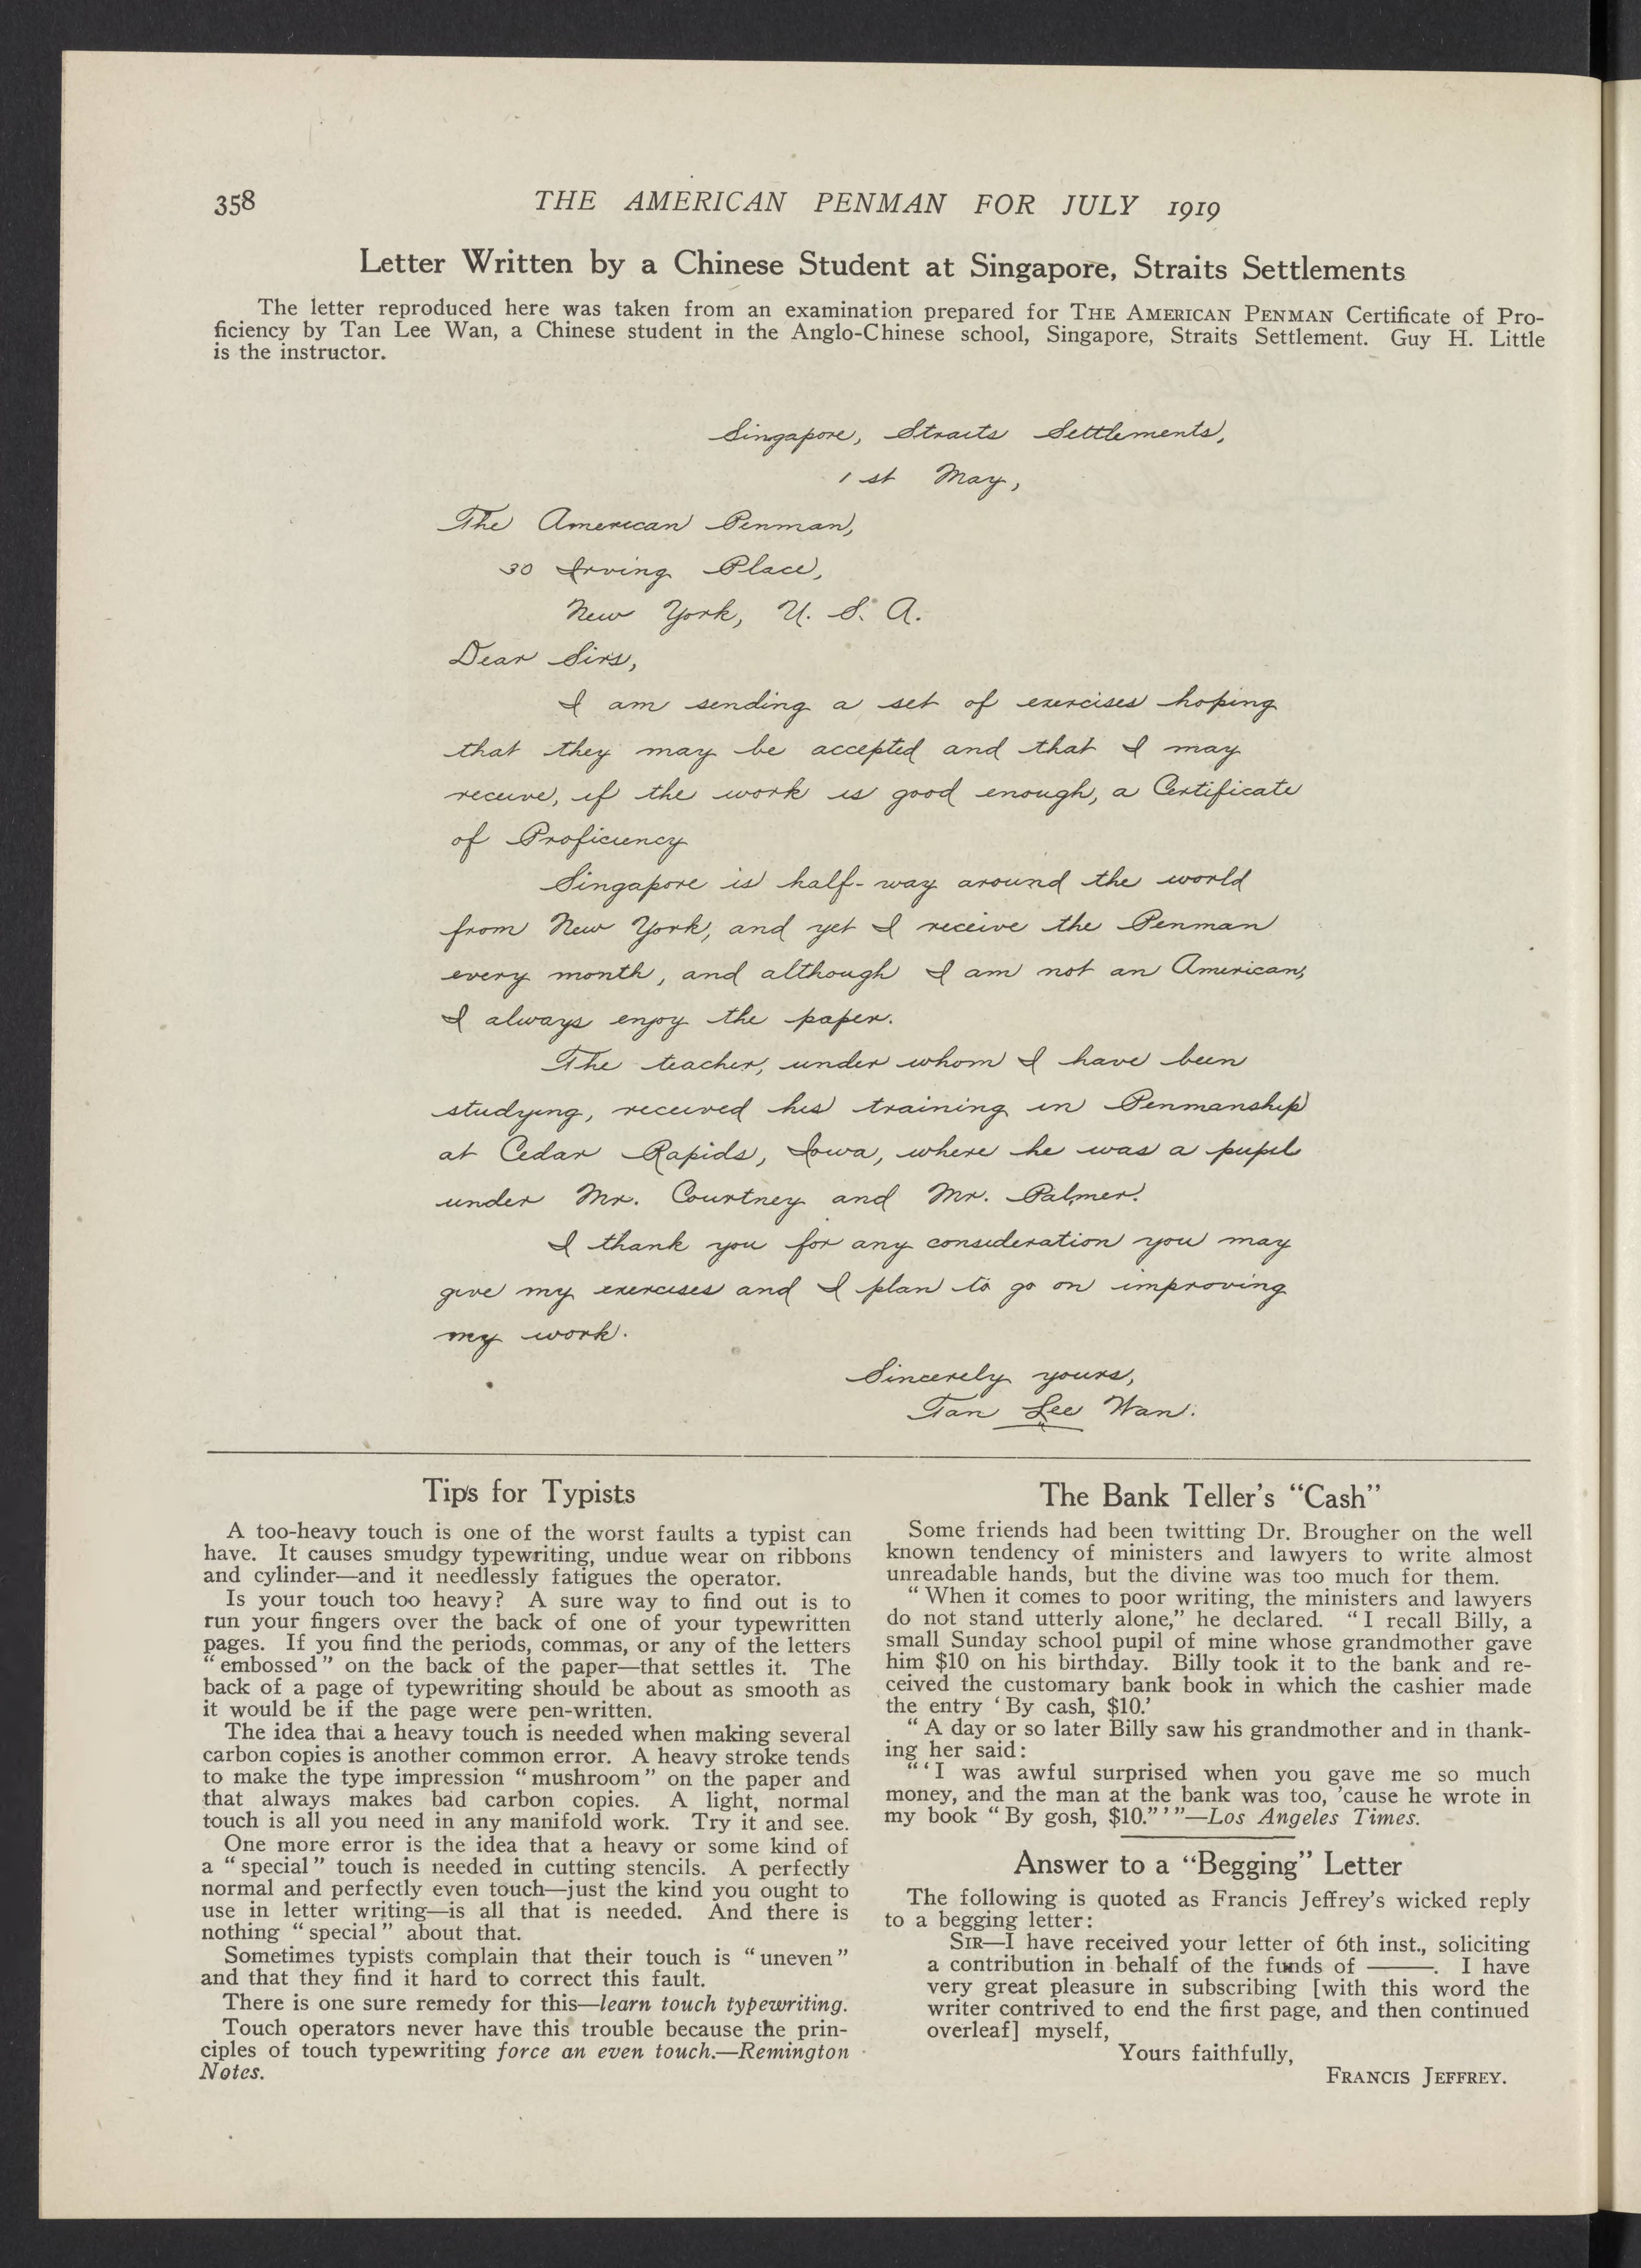 358
THE AMERICAN PENMAN FOR JULY 1919
Letter Written by a Chinese Student at Singapore, Straits Settlements
The letter reproduced here was taken from an examination prepared for THE AMERICAN PENMAN Certificate of Pro-
ficiency by Tan Lee Wan, a Chinese student in the Anglo-Chinese school, Singapore, Straits Settlement. Guy H. Little
is the instructor.
Singapore, Straits Settlements,
1st May,
The American Penman,
30 Irving Place,
New York, U. S. A.
Dear Sirs,
I am sending a set of exercises hoping
that they may be accepted and that I may
receive, if the work is good enough, a Certificate
of Proficiency
Singapore is half-way around the world
from New York, and yet I receive the Penman
every month, and although I am not an American,
I always enjoy the paper.
The teacher, under whom I have been
studying, received his training in Penmanship
at Cedar Rapids, Iowa, where he was a pupil
under Mr. Courtney and Mr. Palmer.
I thank you for any consideration you may
give my exercises and I plan to go on improving
my work.
Sincerely yours,
Tan Lee Wan.
Tips for Typists
A too-heavy touch is one of the worst faults a typist can
have. It causes smudgy typewriting, undue wear on ribbons
and cylinder—and it needlessly fatigues the operator.
Is your touch too heavy? A sure way to find out is to
run your fingers over the back of one of your typewritten
pages. If you find the periods, commas, or any of the letters
"embossed" on the back of the paper—that settles it. The
back of a page of typewriting should be about as smooth as
it would be if the page were pen-written.
The idea that a heavy touch is needed when making several
carbon copies is another common error. A heavy stroke tends
to make the type impression "mushroom" on the paper and
that always makes bad carbon copies. A light, normal
touch is all you need in any manifold work. Try it and see.
One more error is the idea that a heavy or some kind of
a "special" touch is needed in cutting stencils. A perfectly
normal and perfectly even touch—just the kind you ought to
use in letter writing—is all that is needed. And there is
nothing "special" about that.
Sometimes typists complain that their touch is "uneven"
and that they find it hard to correct this fault.
There is one sure remedy for this—learn touch typewriting.
Touch operators never have this trouble because the prin-
ciples of touch typewriting force an even touch.—Remington
Notes.
The Bank Teller's "Cash"
Some friends had been twitting Dr. Brougher on the well
known tendency of ministers and lawyers to write almost
unreadable hands, but the divine was too much for them.
"When it comes to poor writing, the ministers and lawyers
do not stand utterly alone," he declared. "I recall Billy, a
small Sunday school pupil of mine whose grandmother gave
him $10 on his birthday. Billy took it to the bank and re-
ceived the customary bank book in which the cashier made
the entry 'By cash, $10.'
"A day or so later Billy saw his grandmother and in thank-
ing her said:
"'I was awful surprised when you gave me so much
money, and the man at the bank was too, 'cause he wrote in
my book "By gosh, $10."'"—Los Angeles Times.
Answer to a "Begging" Letter
The following is quoted as Francis Jeffrey's wicked reply
to a begging letter:
SIR—I have received your letter of 6th inst., soliciting
a contribution in behalf of the funds of ———. I have
very great pleasure in subscribing [with this word the
writer contrived to end the first page, and then continued
overleaf] myself,
Yours faithfully,
FRANCIS JEFFREY.